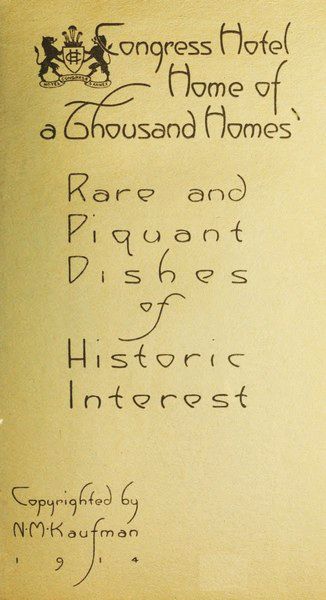 Congress Hotel
Home of
a Thousand Homes
Rare and
Piquant
Dishes
of
Historic
Interest
Copyrighted by
N·M·Kaufman
1914